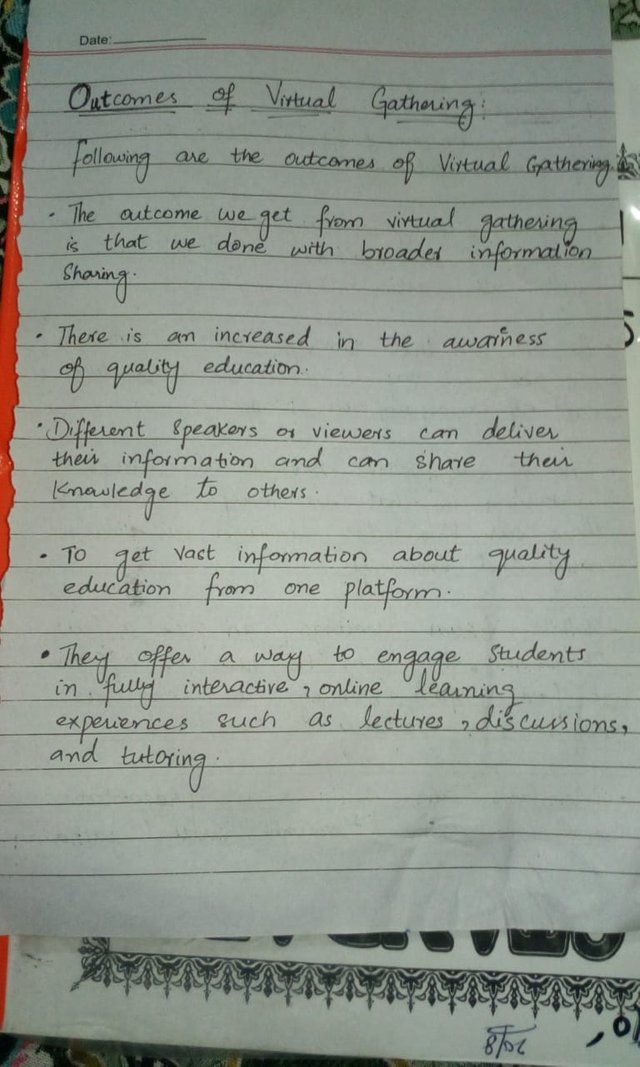 Date:
Outcomes of Virtual Gathering:
following are the outcomes of Virtual Gathering.
• The outcome we get from virtual gathering
is that we done with broader information
Sharing.
• There is an increased in the awarness
of quality education.
• Different Speakers or viewers can deliver
their information and can share their
Knowledge to others.
• To get vast information about quality
education from one platform.
• They offer a way to engage Students
in fully interactive, online learning
experiences such as lectures, discussions,
and tutoring.